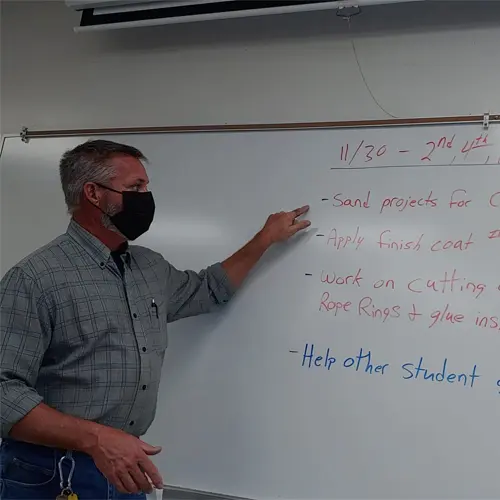 11/30 - 2nd, 4th,
- Sand projects for
- Apply finish coat
- Work on cutting
Rope Rings & glue
- Help other student